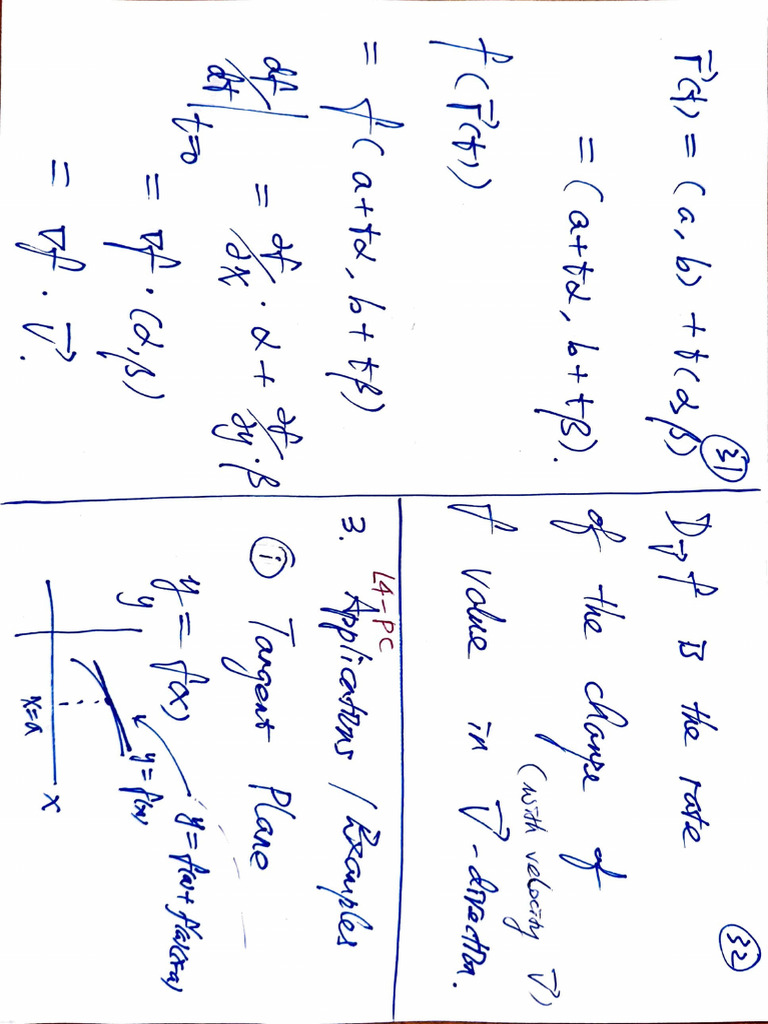 ㉛
r⃗(t) = (a, b) + t(α, β)
= (a+tα, b+tβ).
f(r⃗(t))
= f(a+tα, b+tβ)
df/dt|t=0 = ∂f/∂x · α + ∂f/∂y · β
= ∇f · (α, β)
= ∇f · v⃗.
㉜
Dv⃗f is the rate
of the change of
(with velocity v⃗)
f value in v⃗-direction.
L4-PC
3. Applications / Examples
① Tangent Plane
y = f(x)
y = f(a) + f'(a)(x-a)
y
y = f(x)
x=a
x